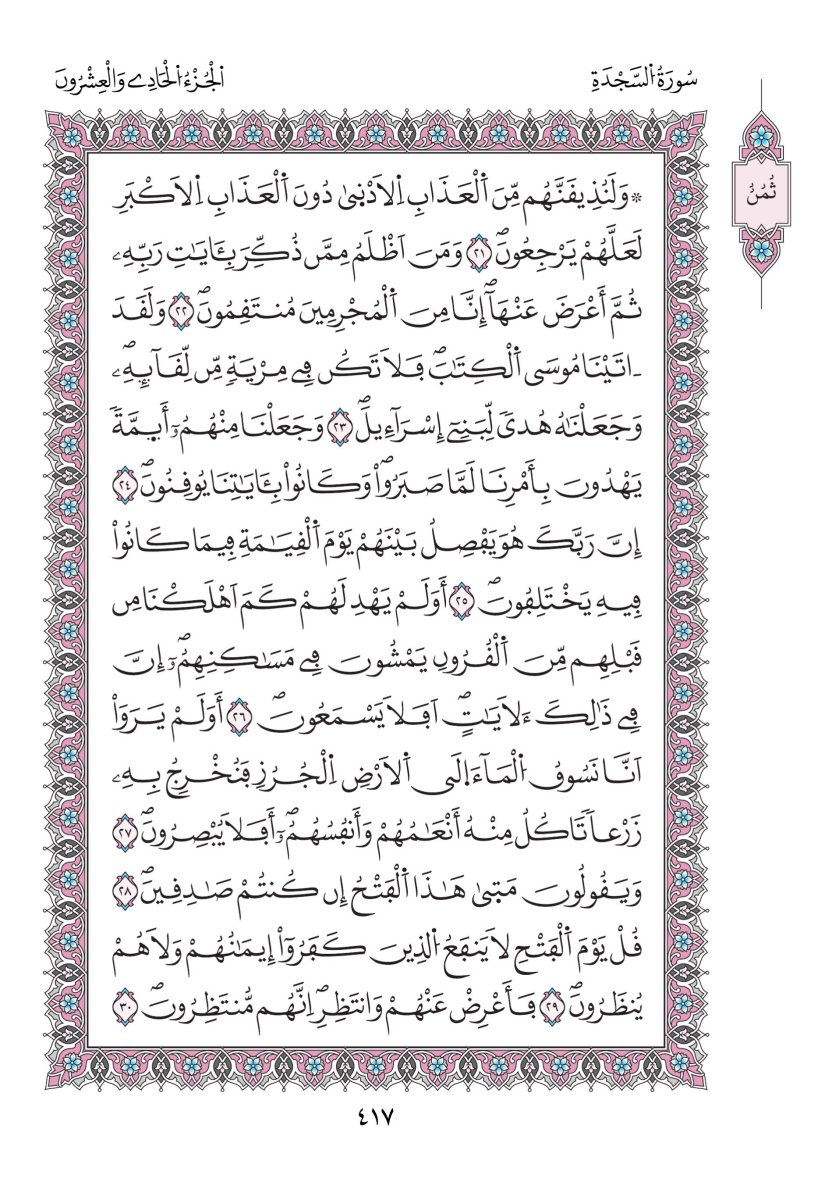 سُورَةُ اُ۬لسَّجْدَةِ
اَ۬لْجُزْءُ اُ۬لْحَادِے وَالْعِشْرُونَ
ثُمُنُ
۞ وَلَنُذِيقَنَّهُم مِّنَ اَ۬لْعَذَابِ اِ۬لَادْنۭيٰ دُونَ اَ۬لْعَذَابِ اِ۬لَاكْبَرِ
لَعَلَّهُمْ يَرْجِعُونَۖ ٢١ وَمَنَ اَظْلَمُ مِمَّن ذُكِّرَ بِـَٔايَٰتِ رَبِّهِۦ
ثُمَّ أَعْرَضَ عَنْهَآۖ إِنَّا مِنَ اَ۬لْمُجْرِمِينَ مُنتَقِمُونَۖ ٢٢ وَلَقَدَ
اٰتَيْنَا مُوسَي اَ۬لْكِتَٰبَۖ فَلَا تَكُن فِے مِرْيَةٖ مِّن لِّقَآئِهِۦۖ
وَجَعَلْنَٰهُ هُديٗ لِّبَنِےٓ إِسْرَآءِيلَۖ ٢٣ وَجَعَلْنَا مِنْهُمُۥٓ أَيِمَّةٗ
يَهْدُونَ بِأَمْرِنَا لَمَّا صَبَرُواْۖ وَكَانُواْ بِـَٔايَٰتِنَا يُوقِنُونَۖ ٢٤
إِنَّ رَبَّكَ هُوَ يَفْصِلُ بَيْنَهُمْ يَوْمَ اَ۬لْقِيَٰمَةِ فِيمَا كَانُواْ
فِيهِ يَخْتَلِفُونَۖ ٢٥ أَوَلَمْ يَهْدِ لَهُمْ كَمَ اَهْلَكْنَا مِن
قَبْلِهِم مِّنَ اَ۬لْقُرُونِ يَمْشُونَ فِے مَسَٰكِنِهِمُۥٓۖ إِنَّ
فِے ذَٰلِكَ ءَلَايَٰتٍۖ اَفَلَا يَسْمَعُونَۖ ٢٦ أَوَلَمْ يَرَوَاْ
اَنَّا نَسُوقُ اُ۬لْمَآءَ اِ۬لَي اَ۬لَارْضِ اِ۬لْجُرُزِ فَنُخْرِجُ بِهِۦ
زَرْعاٗ تَاكُلُ مِنْهُ أَنْعَٰمُهُمْ وَأَنفُسُهُمُۥٓۖ أَفَلَا يُبْصِرُونَۖ ٢٧
وَيَقُولُونَ مَتۭيٰ هَٰذَا اَ۬لْفَتْحُ إِن كُنتُمْ صَٰدِقِينَۖ ٢٨
قُلْ يَوْمَ اَ۬لْفَتْحِ لَا يَنفَعُ اُ۬لذِينَ كَفَرُوٓاْ إِيمَٰنُهُمْ وَلَا هُمْ
يُنظَرُونَۖ ٢٩ فَأَعْرِضْ عَنْهُمْ وَانتَظِرِۖ اِنَّهُم مُّنتَظِرُونَۖ ٣٠
٤١٧